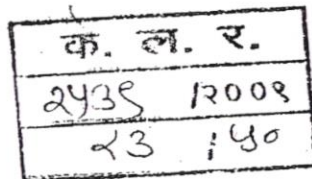 क. ल. र.
२५३९ /२००९
२३ /५०